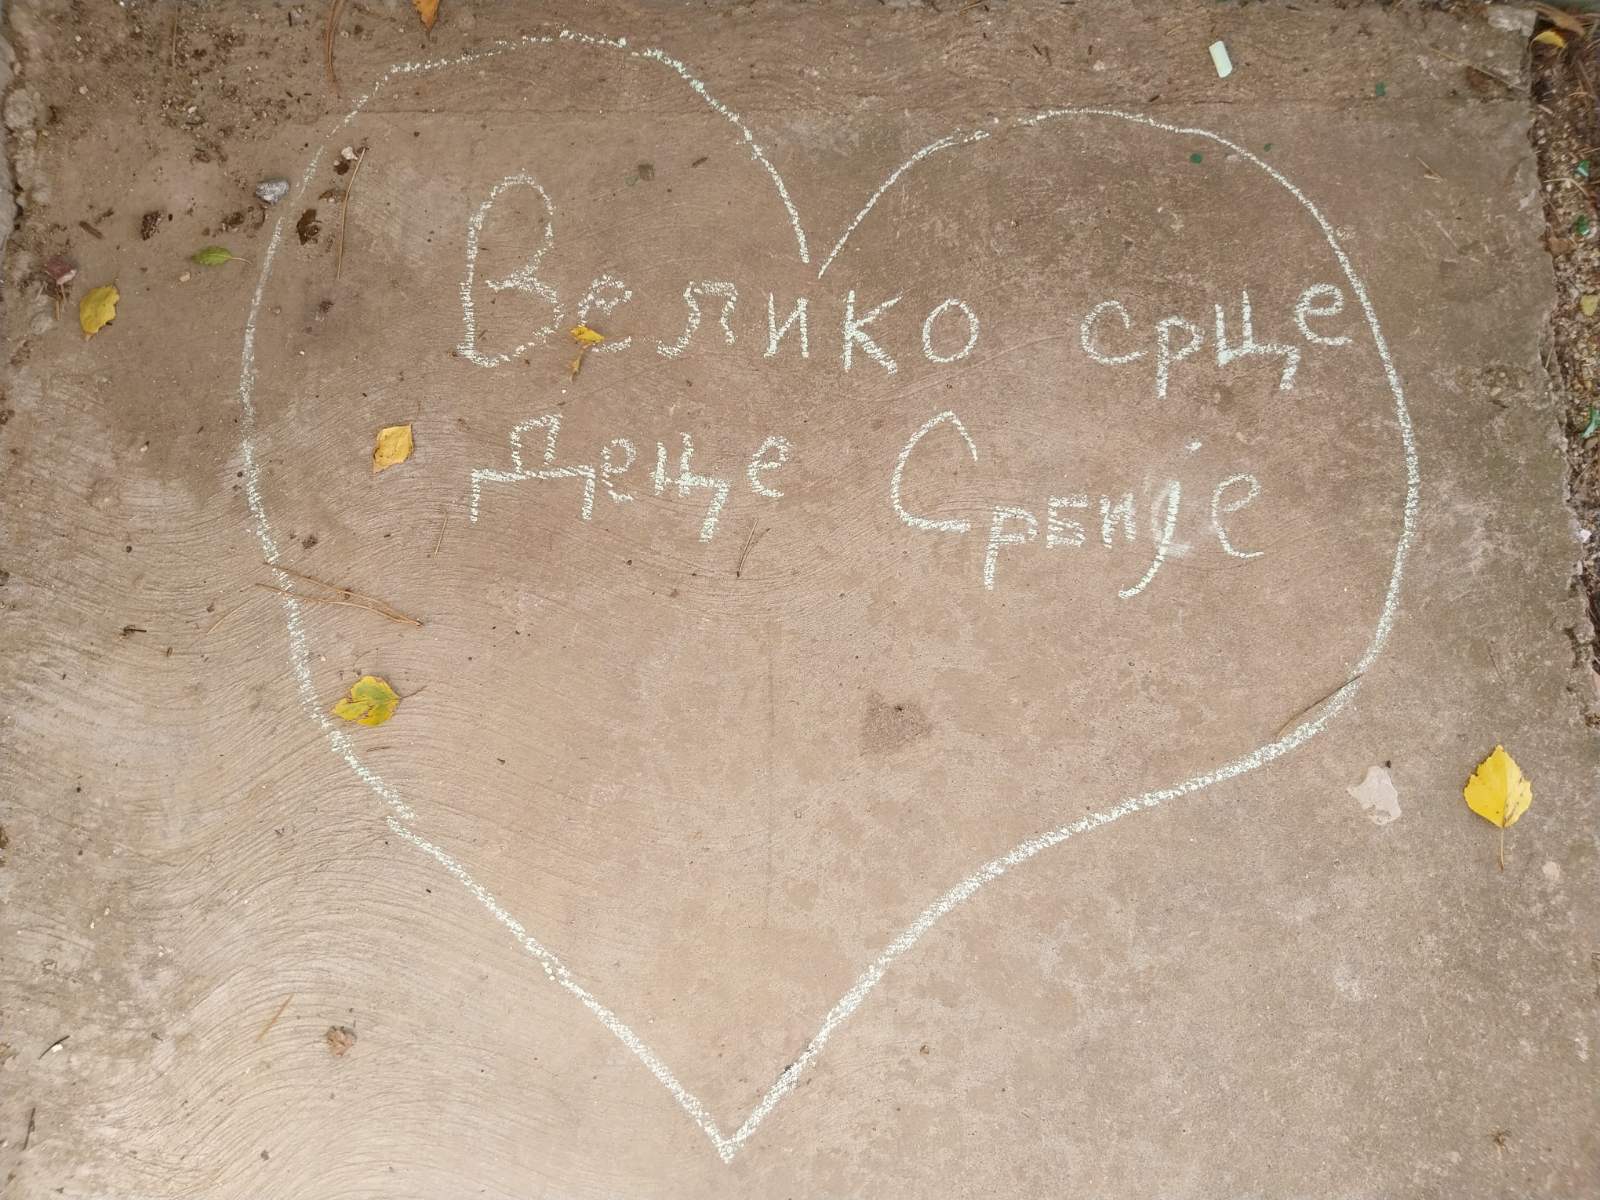 Велико срце
Деце Србије